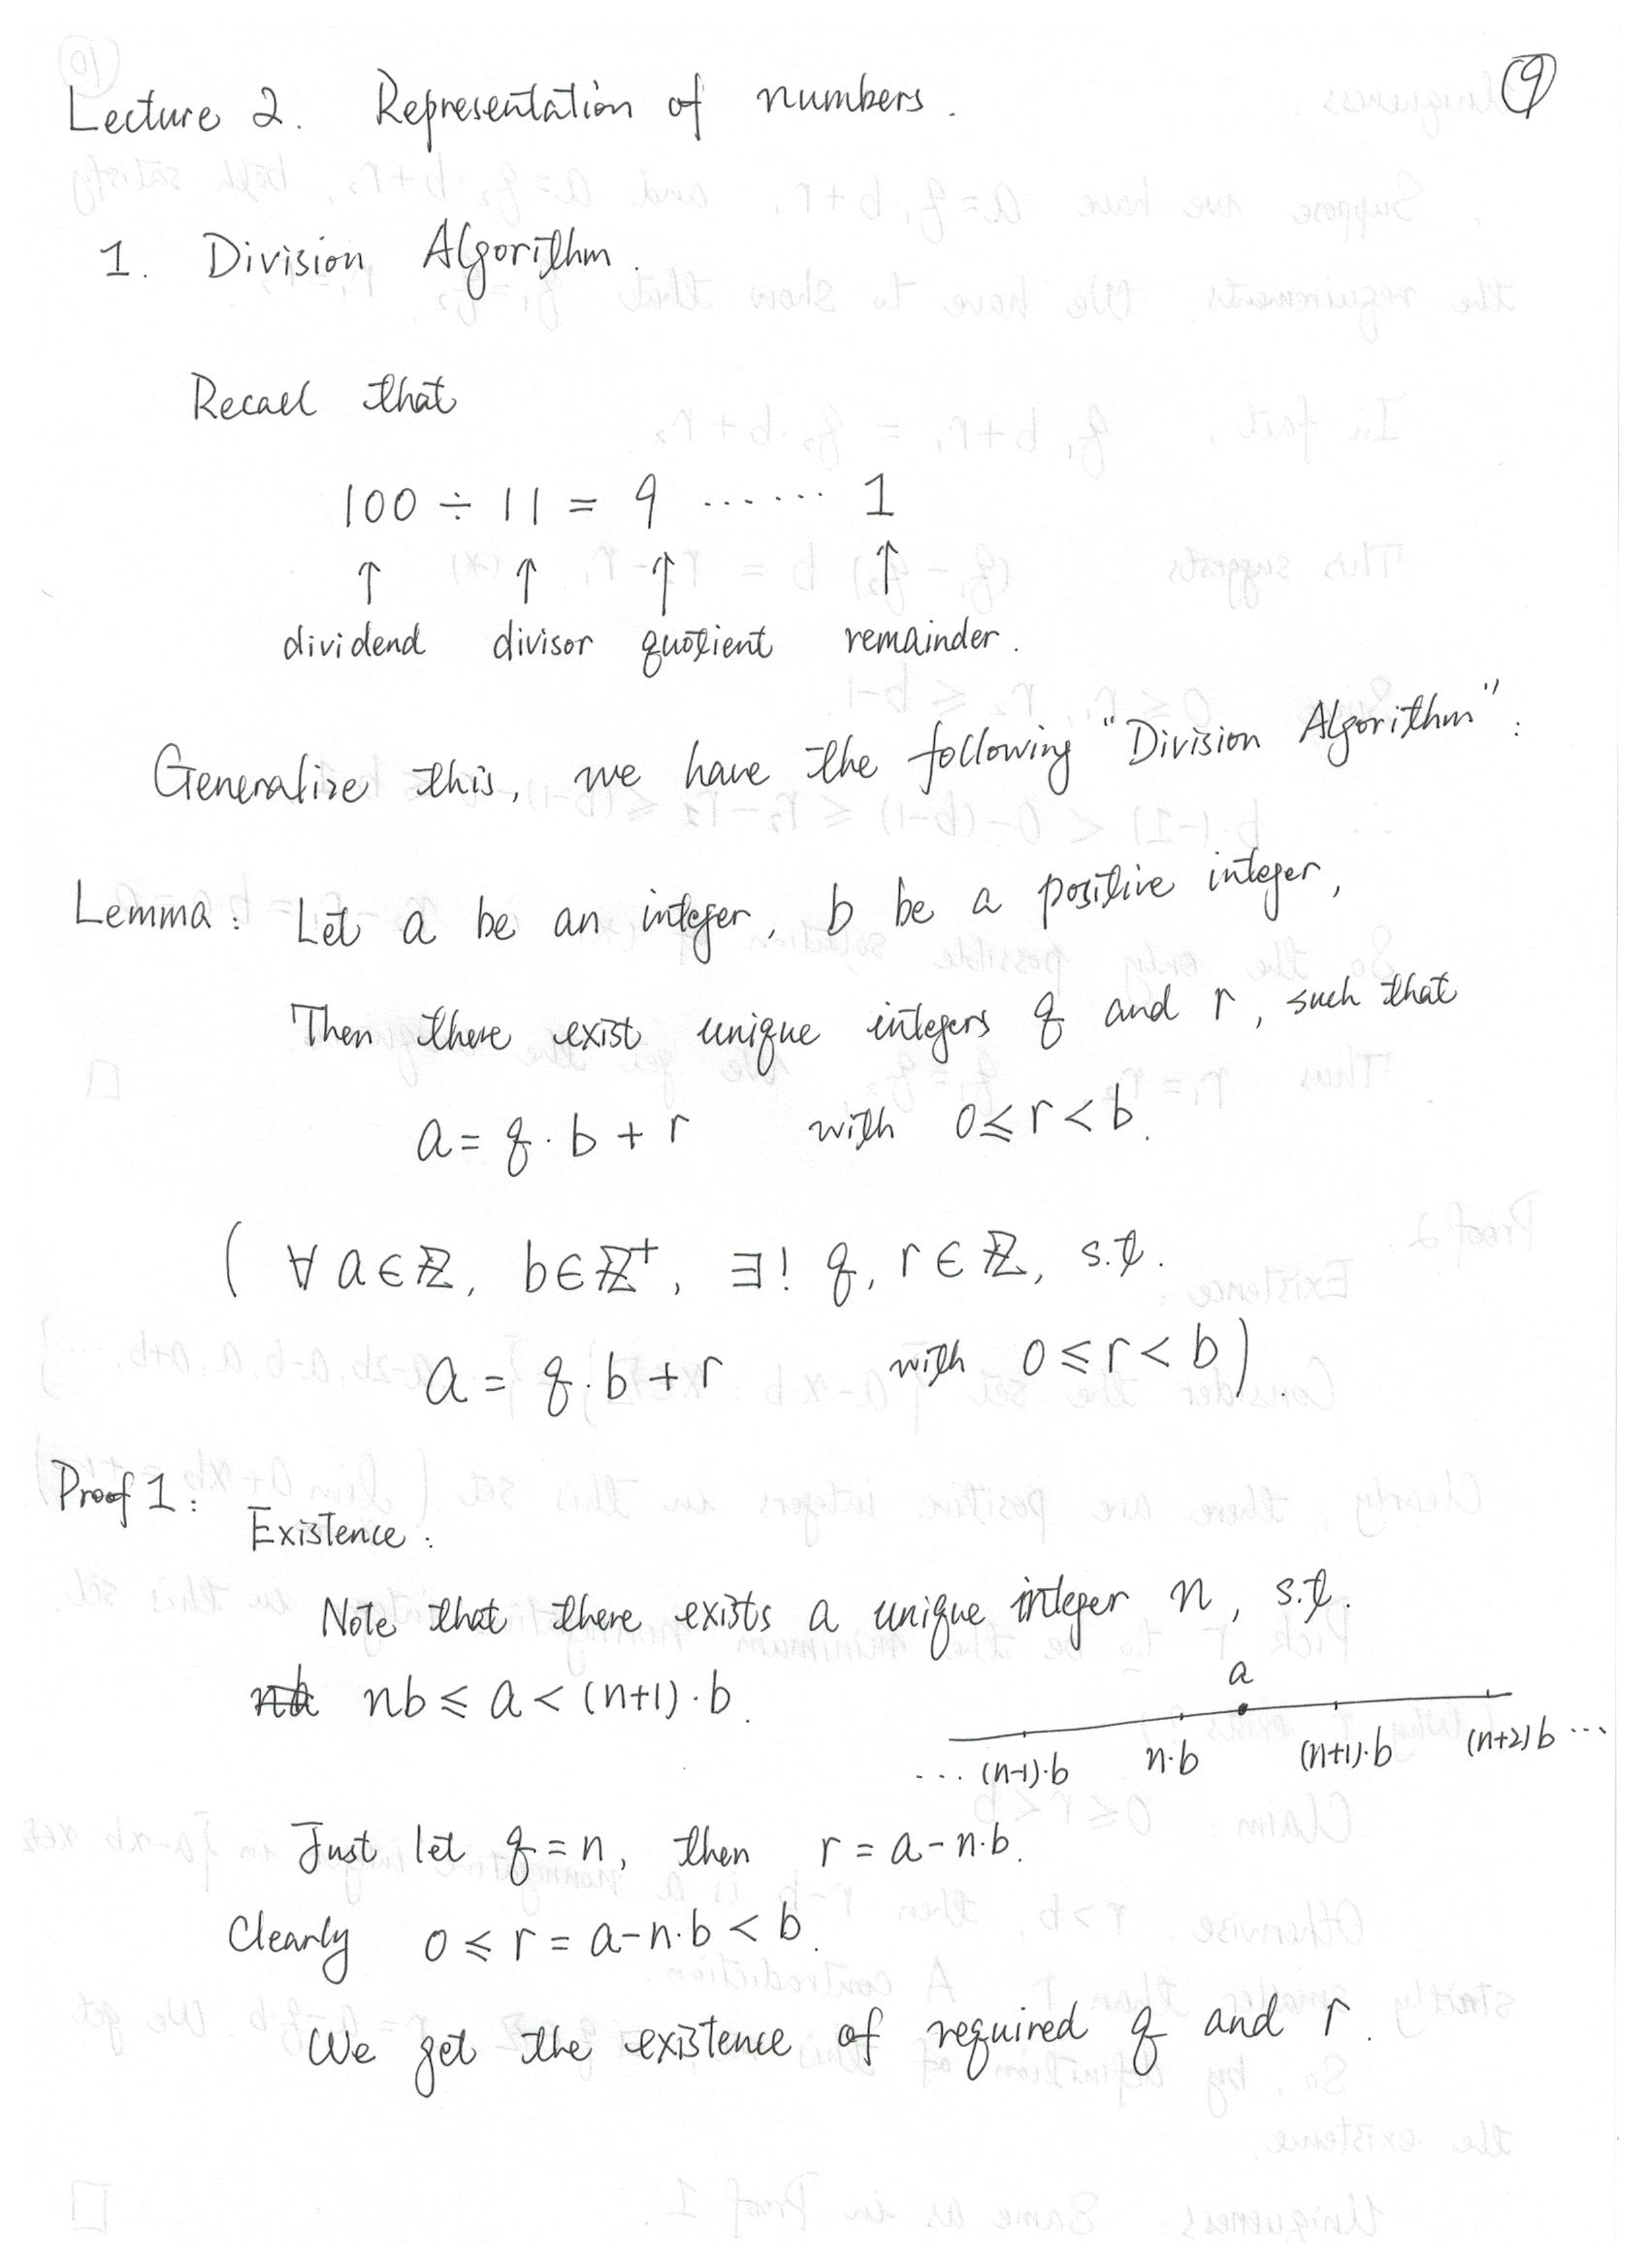 ⑨
Lecture 2. Representation of numbers.
1. Division Algorithm.
Recall that
100 ÷ 11 = 9 ······ 1
↑ ↑ ↑ ↑
dividend divisor quotient remainder.
Generalize this, we have the following "Division Algorithm":
Lemma: Let a be an integer, b be a positive integer,
Then there exist unique integers q and r, such that
a = q·b + r with 0 ≤ r < b.
( ∀ a∈ℤ, b∈ℤ⁺, ∃! q, r∈ℤ, s.t.
a = q·b + r with 0 ≤ r < b ).
Proof 1:
Existence:
Note that there exists a unique integer n, s.t.
nb ≤ a < (n+1)·b.
a
... (n-1)·b n·b (n+1)·b (n+2)b ...
Just let q = n, then r = a - n·b.
Clearly 0 ≤ r = a - n·b < b.
We get the existence of required q and r.